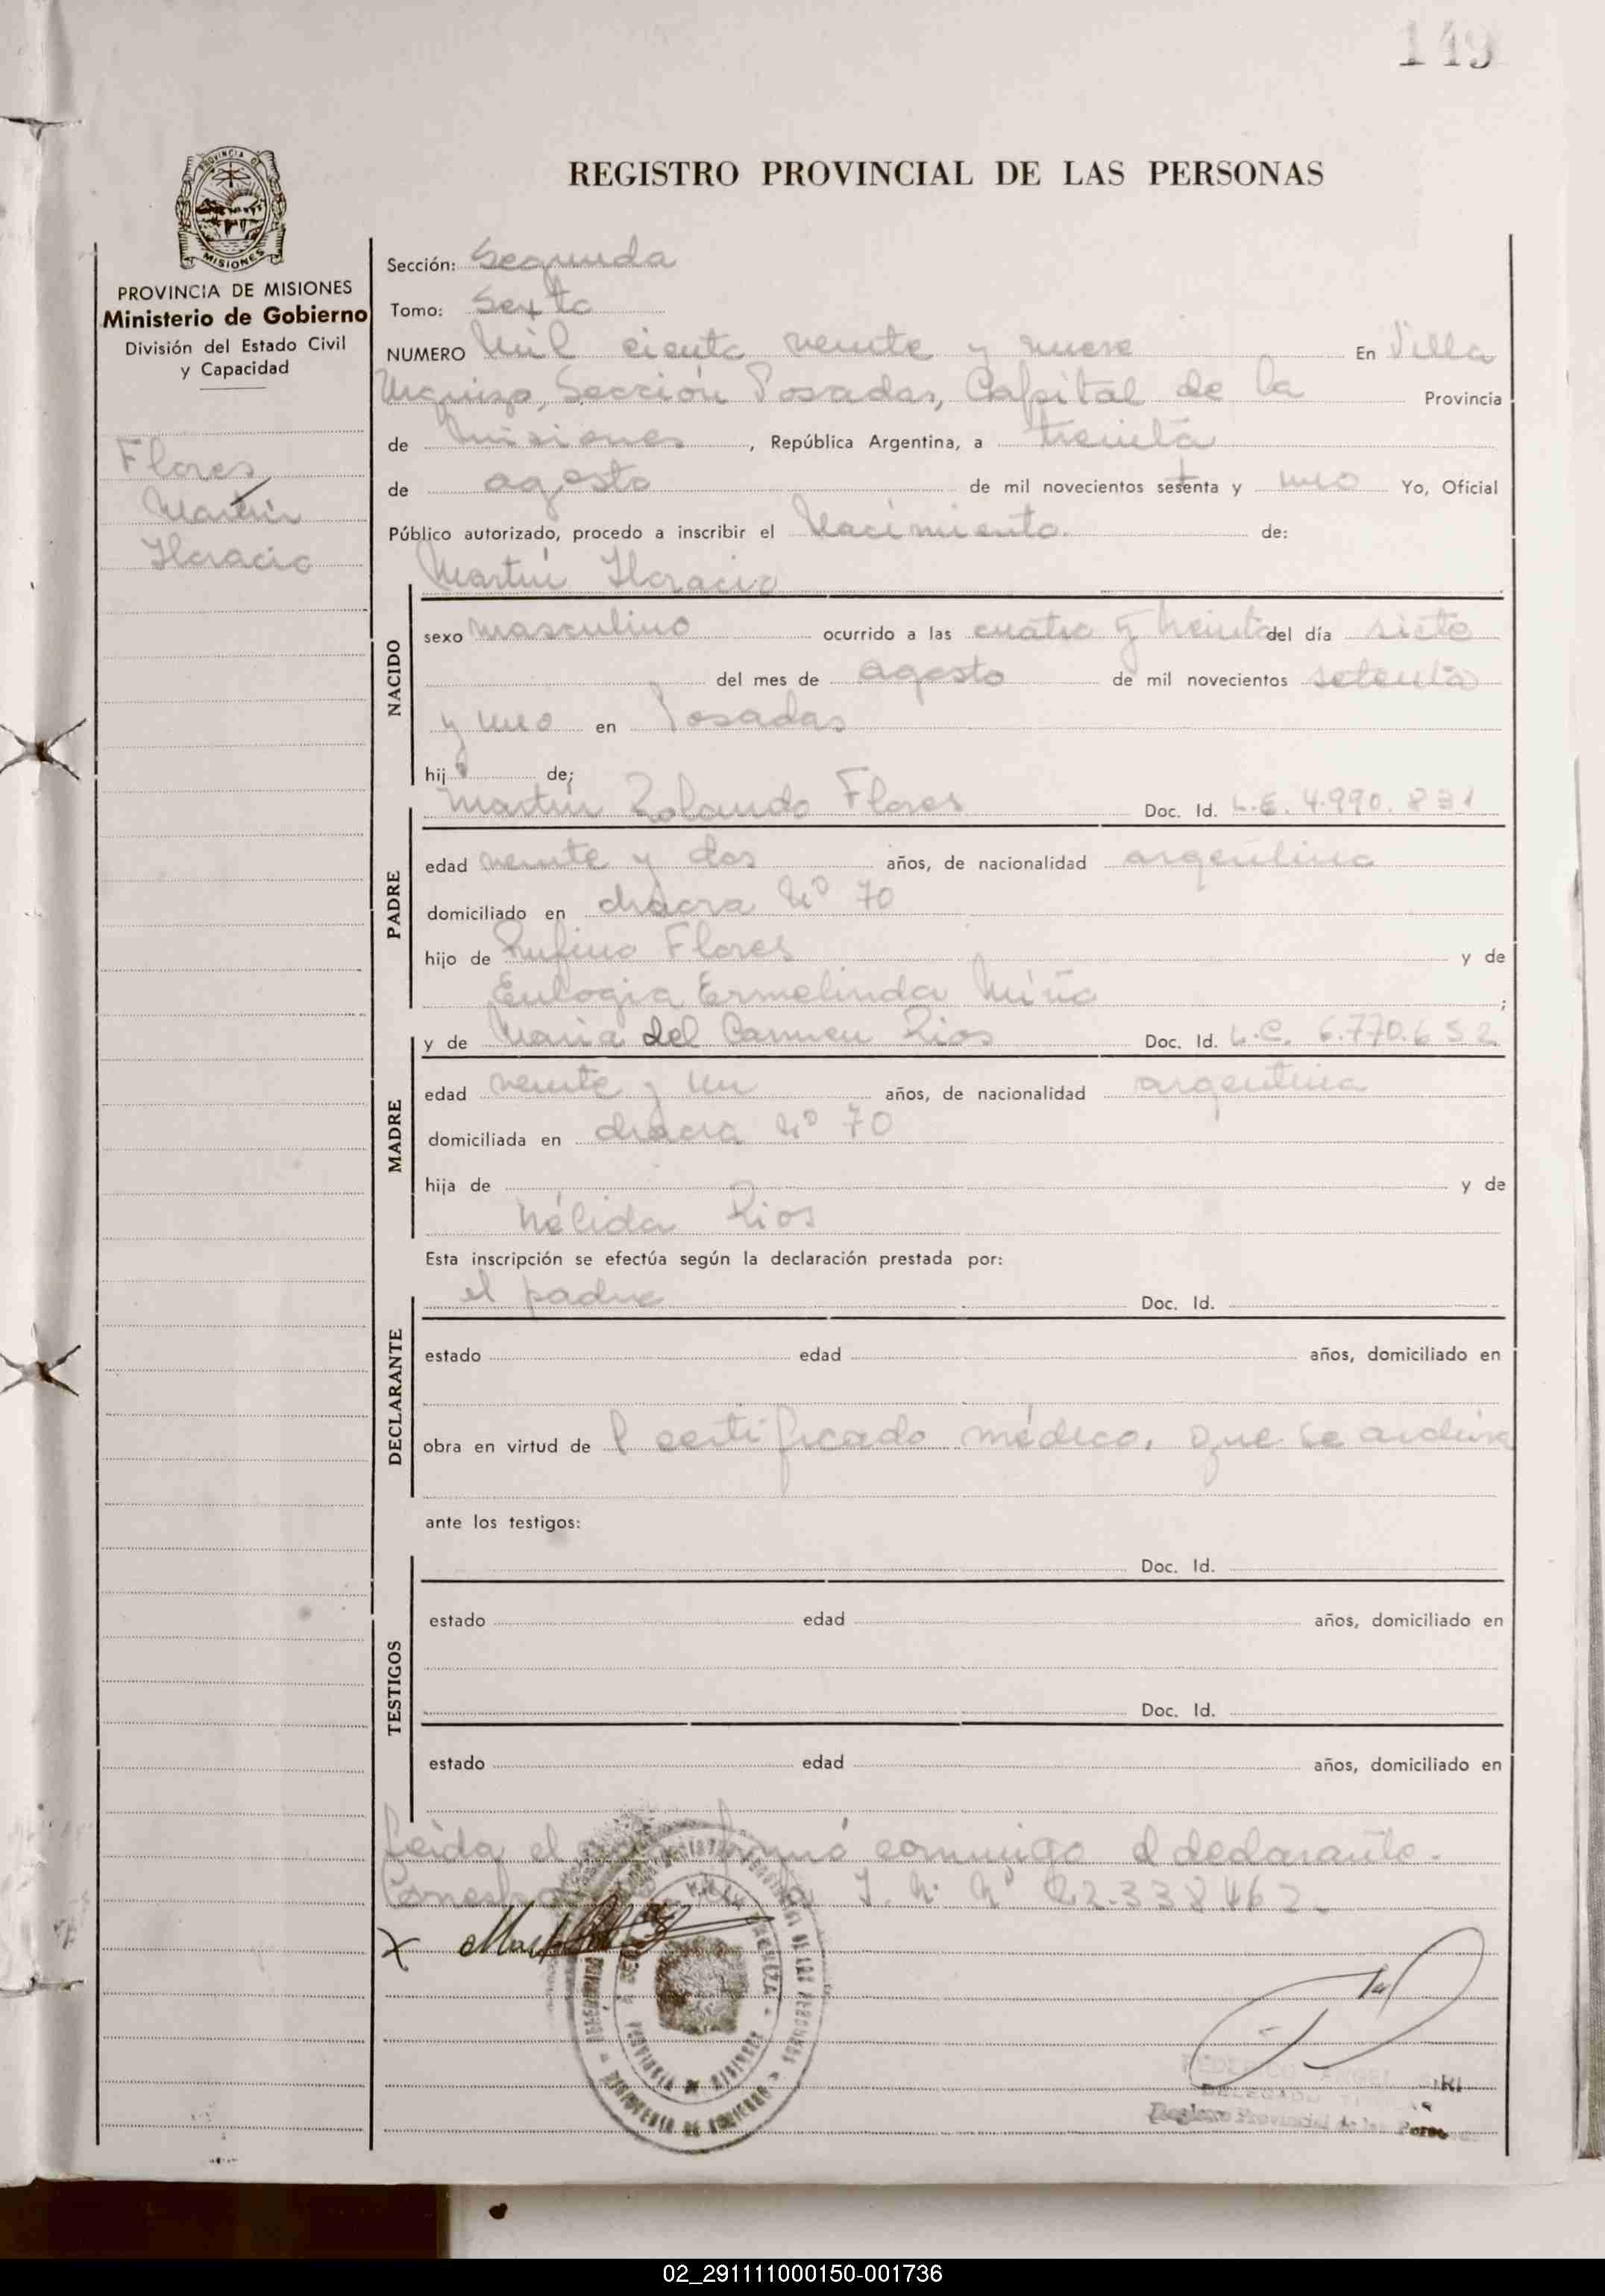 149
REGISTRO PROVINCIAL DE LAS PERSONAS
PROVINCIA DE MISIONES
Ministerio de Gobierno
División del Estado Civil
y Capacidad
Flores
Martín
Horacio
Sección: Segunda
Tomo: Sexto
NUMERO Mil ciento veinte y nueve En Villa
Urquiza, Sección Posadas, Capital de la Provincia
de Misiones, República Argentina, a treinta
de agosto de mil novecientos setenta y uno Yo, Oficial
Público autorizado, procedo a inscribir el Nacimiento de:
Martín Horacio
NACIDO
sexo masculino ocurrido a las cuatro y treinta del día siete
del mes de agosto de mil novecientos setenta
y uno en Posadas
hijo de;
PADRE
Martín Rolando Flores Doc. Id. L.E. 4.990.831
edad veinte y dos años, de nacionalidad argentina
domiciliado en chacra Nº 70
hijo de Rufino Flores y de
Eulogia Ermelinda Miño ;
MADRE
y de Maria del Carmen Rios Doc. Id. L.C. 6.770.652
edad veinte y un años, de nacionalidad argentina
domiciliada en chacra Nº 70
hija de y de
Nélida Rios
Esta inscripción se efectúa según la declaración prestada por:
DECLARANTE
el padre Doc. Id.
estado edad años, domiciliado en
obra en virtud de l certificado médico, que se archiva
ante los testigos:
TESTIGOS
Doc. Id.
estado edad años, domiciliado en
Doc. Id.
estado edad años, domiciliado en
Leída el firmó conmigo el declarante.
I. N. Nº 22.338.462.
Registro Provincial de las Personas
02_291111000150-001736